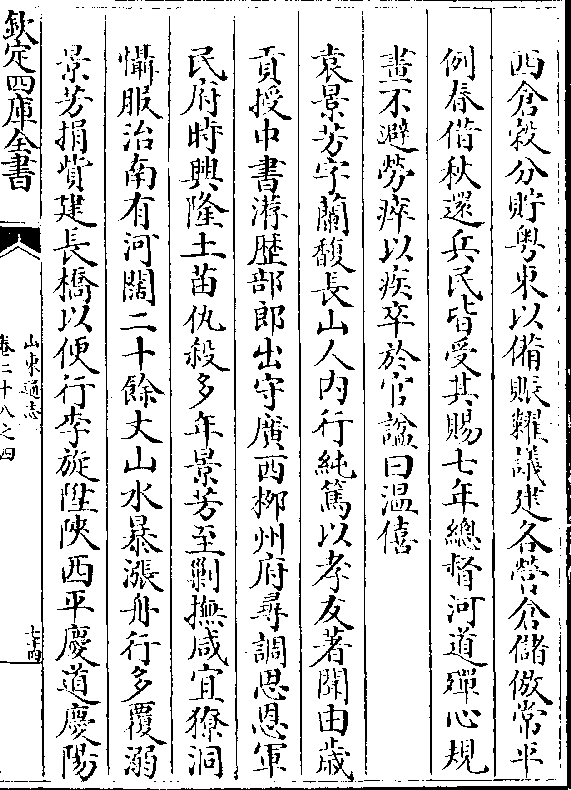 西倉穀分貯粤東以備賑糶議建各營倉儲倣常平
例春借秋還兵民皆受其賜七年總督河道殫心規
畫不避勞瘁以疾卒於官諡曰温僖
袁景芳字蘭馥長山人内行純篤以孝友著聞由歲
貢授中書游歴部郎出守廣西栁州府尋調思恩軍
民府時興隆土苗仇殺多年景芳至剿撫咸宜獠洞
懾服治南有河闊二十餘丈山水暴漲舟行多覆溺
景芳捐貲建長橋以便行李旋陞陜西平慶道慶陽
欽定四庫全書
山東通志
卷二十八之四
七十四